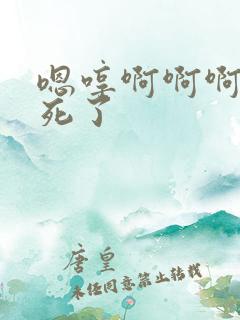 嗯哼啊啊啊
死了
唐皇
未经同意禁止转载